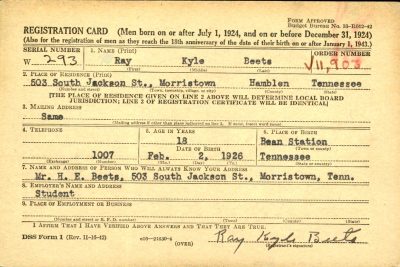 FORM APPROVED
Budget Bureau No. 33-R002-42
REGISTRATION CARD (Men born on or after July 1, 1924, and on or before December 31, 1924)
(Also for the registration of men as they reach the 18th anniversary of the date of their birth on or after January 1, 1943.)
SERIAL NUMBER 1. NAME (Print) ORDER NUMBER
W 293 Ray Kyle Beets V11,903
(First) (Middle) (Last)
2. PLACE OF RESIDENCE (Print)
503 South Jackson St., Morristown Hamblen Tennessee
(Number and street) (Town, township, village, or city) (County) (State)
[THE PLACE OF RESIDENCE GIVEN ON LINE 2 ABOVE WILL DETERMINE LOCAL BOARD
JURISDICTION; LINE 2 OF REGISTRATION CERTIFICATE WILL BE IDENTICAL]
3. MAILING ADDRESS
Same
(Mailing address if other than place indicated on line 2. If same, insert word same)
4. TELEPHONE 5. AGE IN YEARS 6. PLACE OF BIRTH
18 Bean Station
DATE OF BIRTH (Town or county)
1007 Feb. 2, 1926 Tennessee
(Exchange) (Number) (Mo.) (Day) (Yr.) (State or country)
7. NAME AND ADDRESS OF PERSON WHO WILL ALWAYS KNOW YOUR ADDRESS
Mr. H. E. Beets, 503 South Jackson St., Morristown, Tenn.
8. EMPLOYER'S NAME AND ADDRESS
Student
9. PLACE OF EMPLOYMENT OR BUSINESS
(Number and street or R. F. D. number) (Town) (County) (State)
I AFFIRM THAT I HAVE VERIFIED ABOVE ANSWERS AND THAT THEY ARE TRUE.
DSS Form 1 (Rev. 11-16-42) (OVER) Ray Kyle Beets
(Registrant's signature)